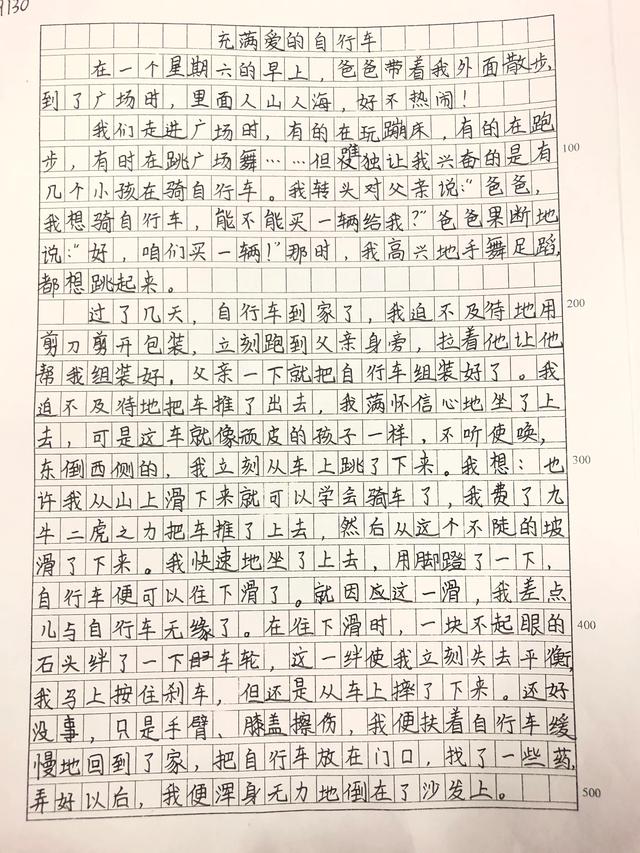 9130
充满爱的自行车
在一个星期六的早上，爸爸带着我外面散步，
到了广场时，里面人山人海，好不热闹！
我们走进广场时，有的在玩蹦床，有的在跑
步，有时在跳广场舞……但唯独让我兴奋的是有
100
几个小孩在骑自行车。我转头对父亲说：“爸爸，
我想骑自行车，能不能买一辆给我？”爸爸果断地
说：“好，咱们买一辆！”那时，我高兴地手舞足蹈，
都想跳起来。
过了几天，自行车到家了，我迫不及待地用
200
剪刀剪开包装，立刻跑到父亲身旁，拉着他让他
帮我组装好，父亲一下就把自行车组装好了。我
迫不及待地把车推了出去，我满怀信心地坐了上
去，可是这车就像顽皮的孩子一样，不听使唤，
东倒西侧的，我立刻从车上跳了下来。我想：也
300
许我从山上滑下来就可以学会骑车了，我费了九
牛二虎之力把车推了上去，然后从这个不陡的坡
滑了下来。我快速地坐了上去，用脚蹬了一下，
自行车便可以往下滑了。就因应这一滑，我差点
儿与自行车无缘了。在往下滑时，一块不起眼的
400
石头绊了一下车轮，这一绊使我立刻失去平衡，
我马上按住刹车，但还是从车上摔了下来。还好
没事，只是手臂、膝盖擦伤，我便扶着自行车缓
慢地回到了家，把自行车放在门口，找了一些药，
弄好以后，我便浑身无力地倒在了沙发上。
500